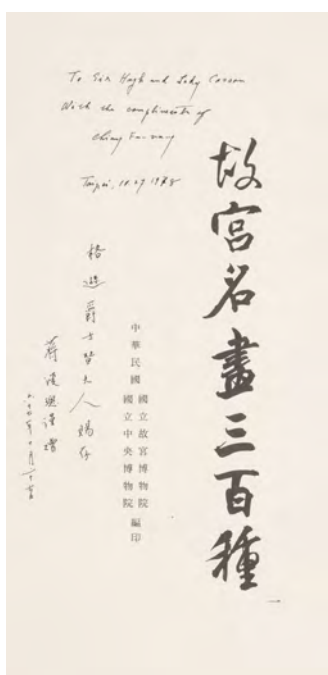 To Sir Hugh and Lady Casson
With the compliments of
Chiang Fu-
Taipei, 10.27 1978
故宮名畫三百種
一
中華民國
國立故宮博物院
國立中央博物院
編印
爵士暨夫人賜存
蔣
謹贈